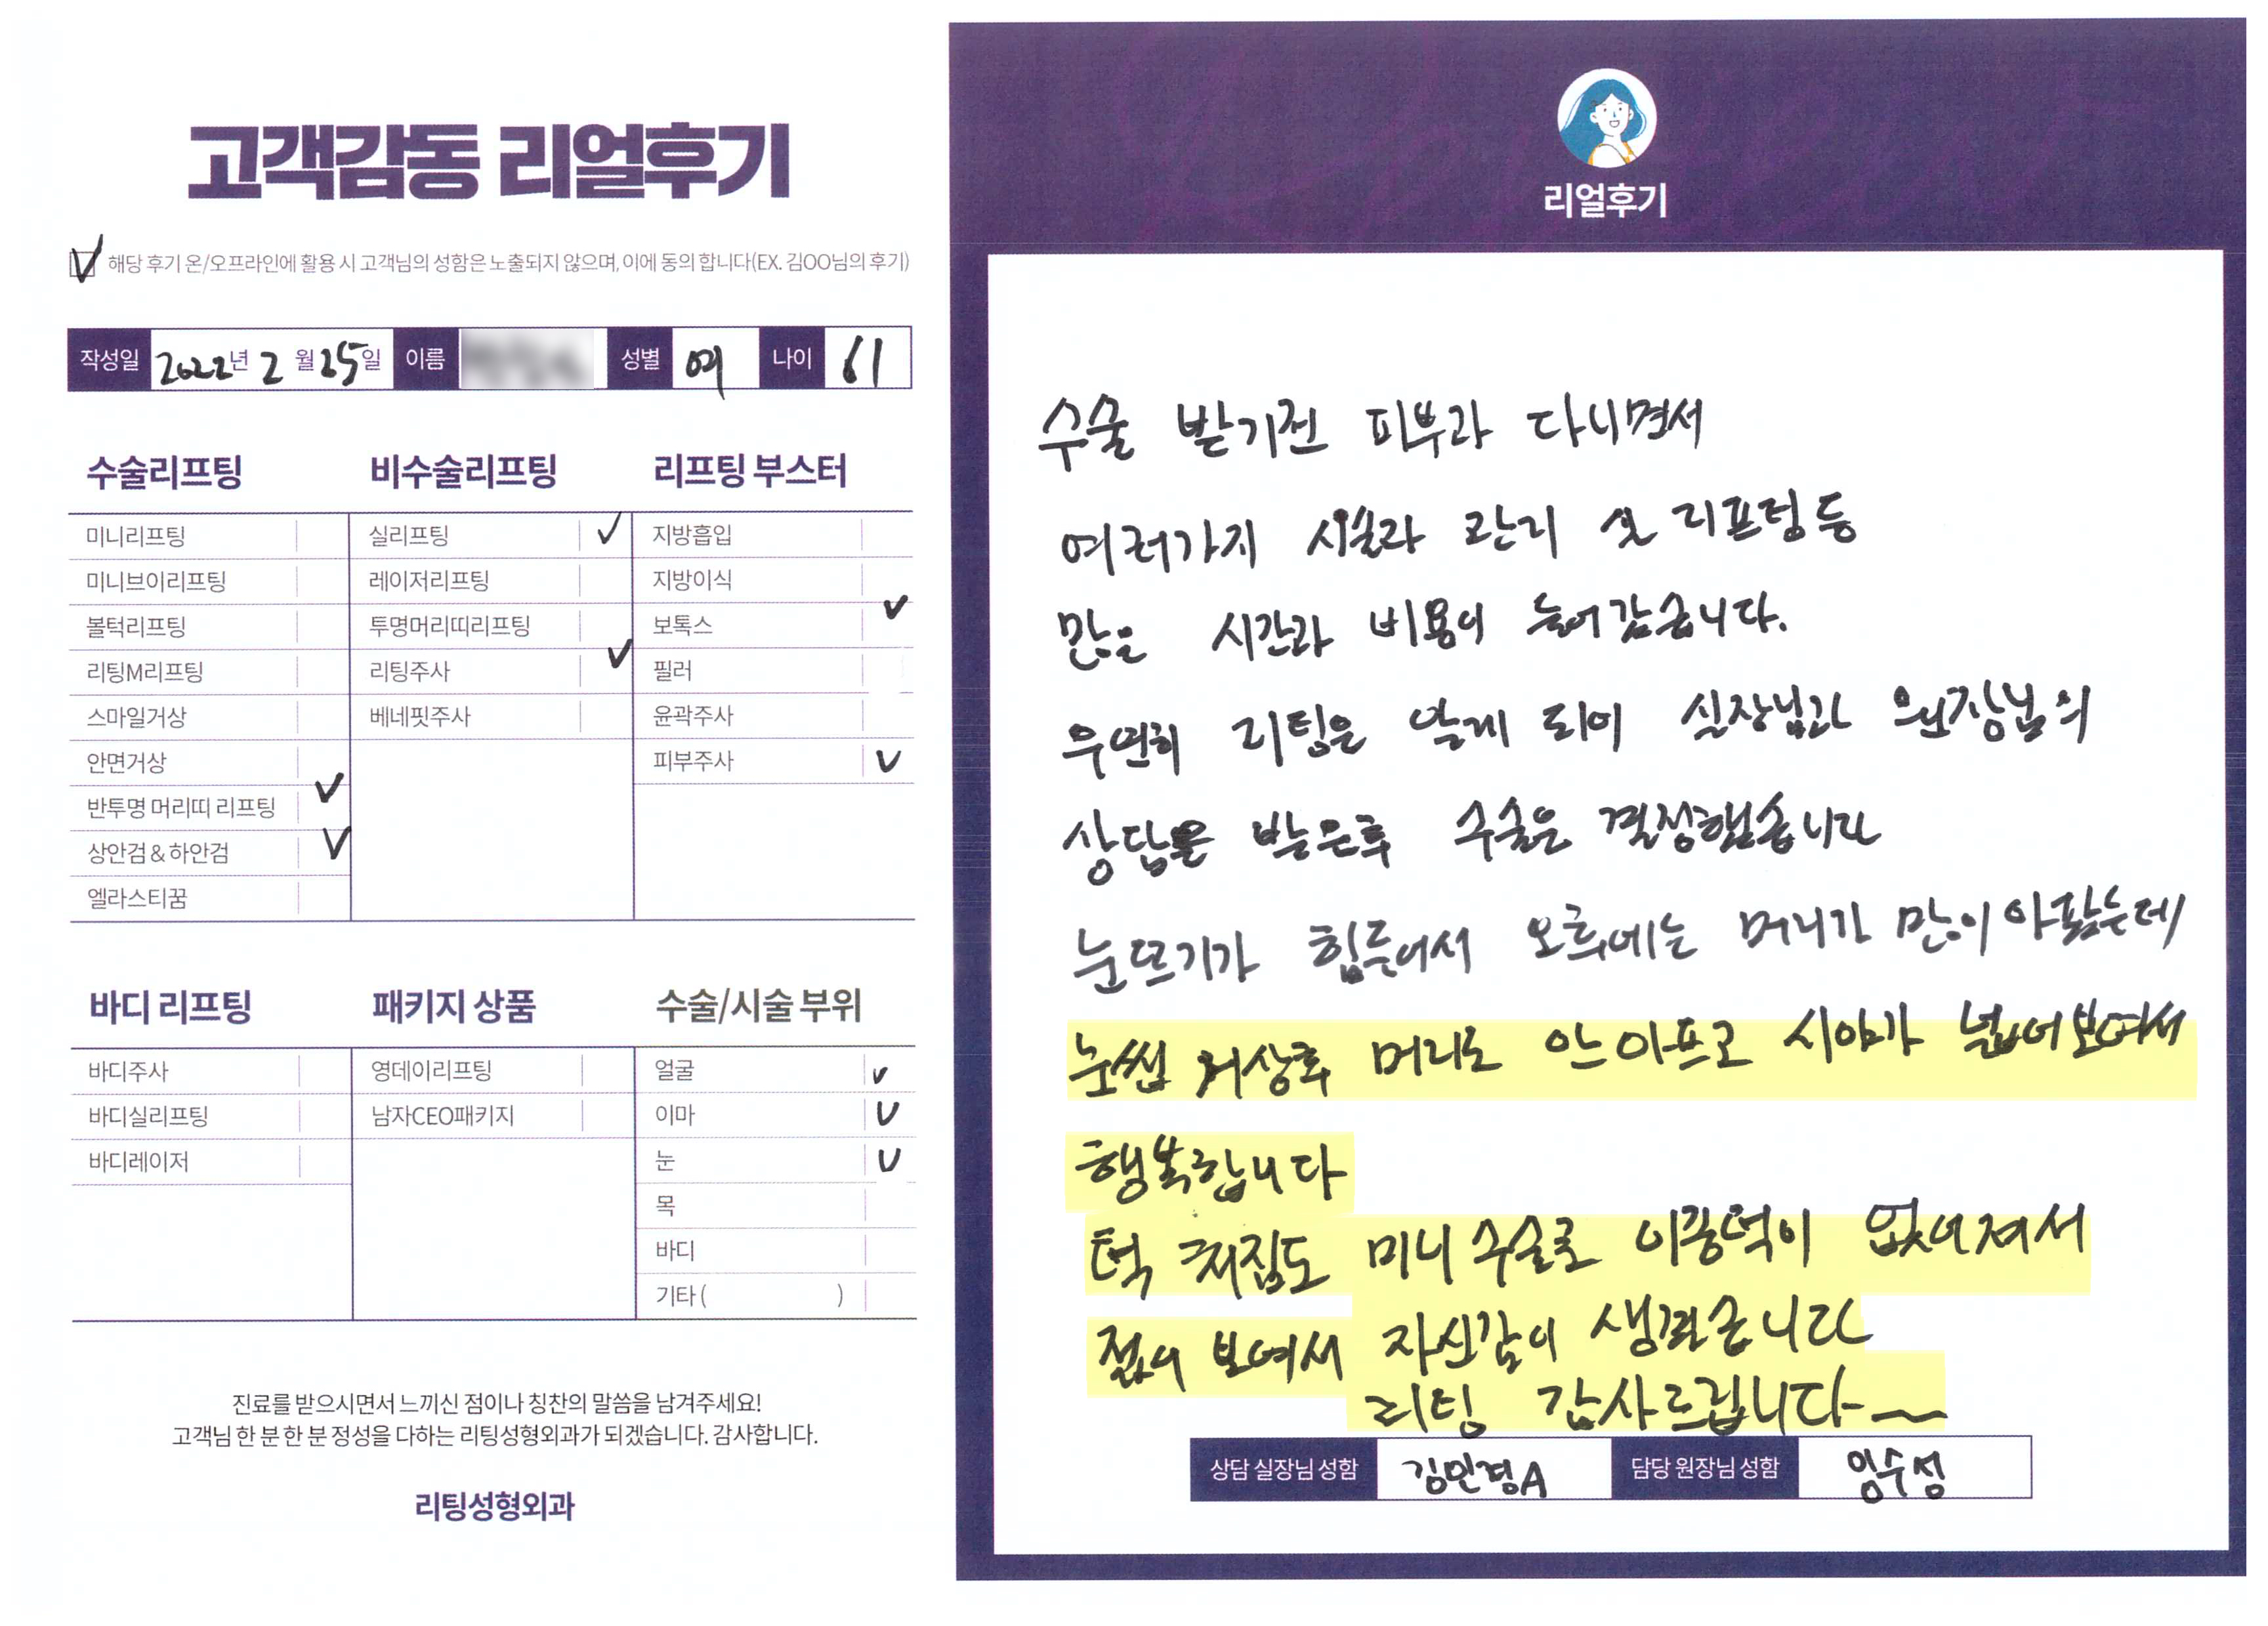 고객감동 리얼후기
해당 후기 온/오프라인에 활용 시 고객님의 성함은 노출되지 않으며, 이에 동의 합니다(EX. 김OO님의 후기)
작성일 2022년 2월 25일 이름 성별 여 나이 61
수술리프팅
미니리프팅
미니브이리프팅
볼턱리프팅
리팅M리프팅
스마일거상
안면거상
반투명 머리띠 리프팅
상안검 & 하안검
엘라스티꿈
비수술리프팅
실리프팅
레이저리프팅
투명머리띠리프팅
리팅주사
베네핏주사
리프팅 부스터
지방흡입
지방이식
보톡스
필러
윤곽주사
피부주사
바디 리프팅
바디주사
바디실리프팅
바디레이저
패키지 상품
영데이리프팅
남자CEO패키지
수술/시술 부위
얼굴
이마
눈
목
바디
기타 ( )
진료를 받으시면서 느끼신 점이나 칭찬의 말씀을 남겨주세요!
고객님 한 분 한 분 정성을 다하는 리팅성형외과가 되겠습니다. 감사합니다.
리팅성형외과
리얼후기
수술 받기전 피부과 다니면서
여러가지 시술과 관리 실 리프팅등
많은 시간과 비용이 들어갔습니다.
우연히 리팅을 알게 되어 실장님과 원장님의
상담을 받은후 수술을 결정했습니다
눈뜨기가 힘들어서 오후에는 머리가 많이 아팠는데
눈썹 거상후 머리도 안 아프고 시야가 넓어보여서
행복합니다
턱 처짐도 미니 수술로 이중턱이 없어져서
젊어 보여서 자신감이 생겼습니다
리팅 감사드립니다~
상담 실장님 성함 김민경A 담당 원장님 성함 임수성